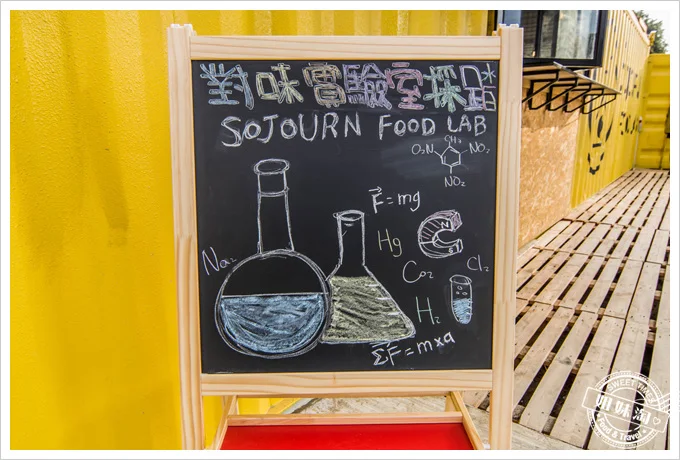 對味實驗室採踏
SOJOURN FOOD LAB
CH3
O2N
NO2
NO2
F = mg
Hg
N
S
Na2
Co2
Cl2
H2
ΣF = mxa
SWEET TIME
Food & Travel